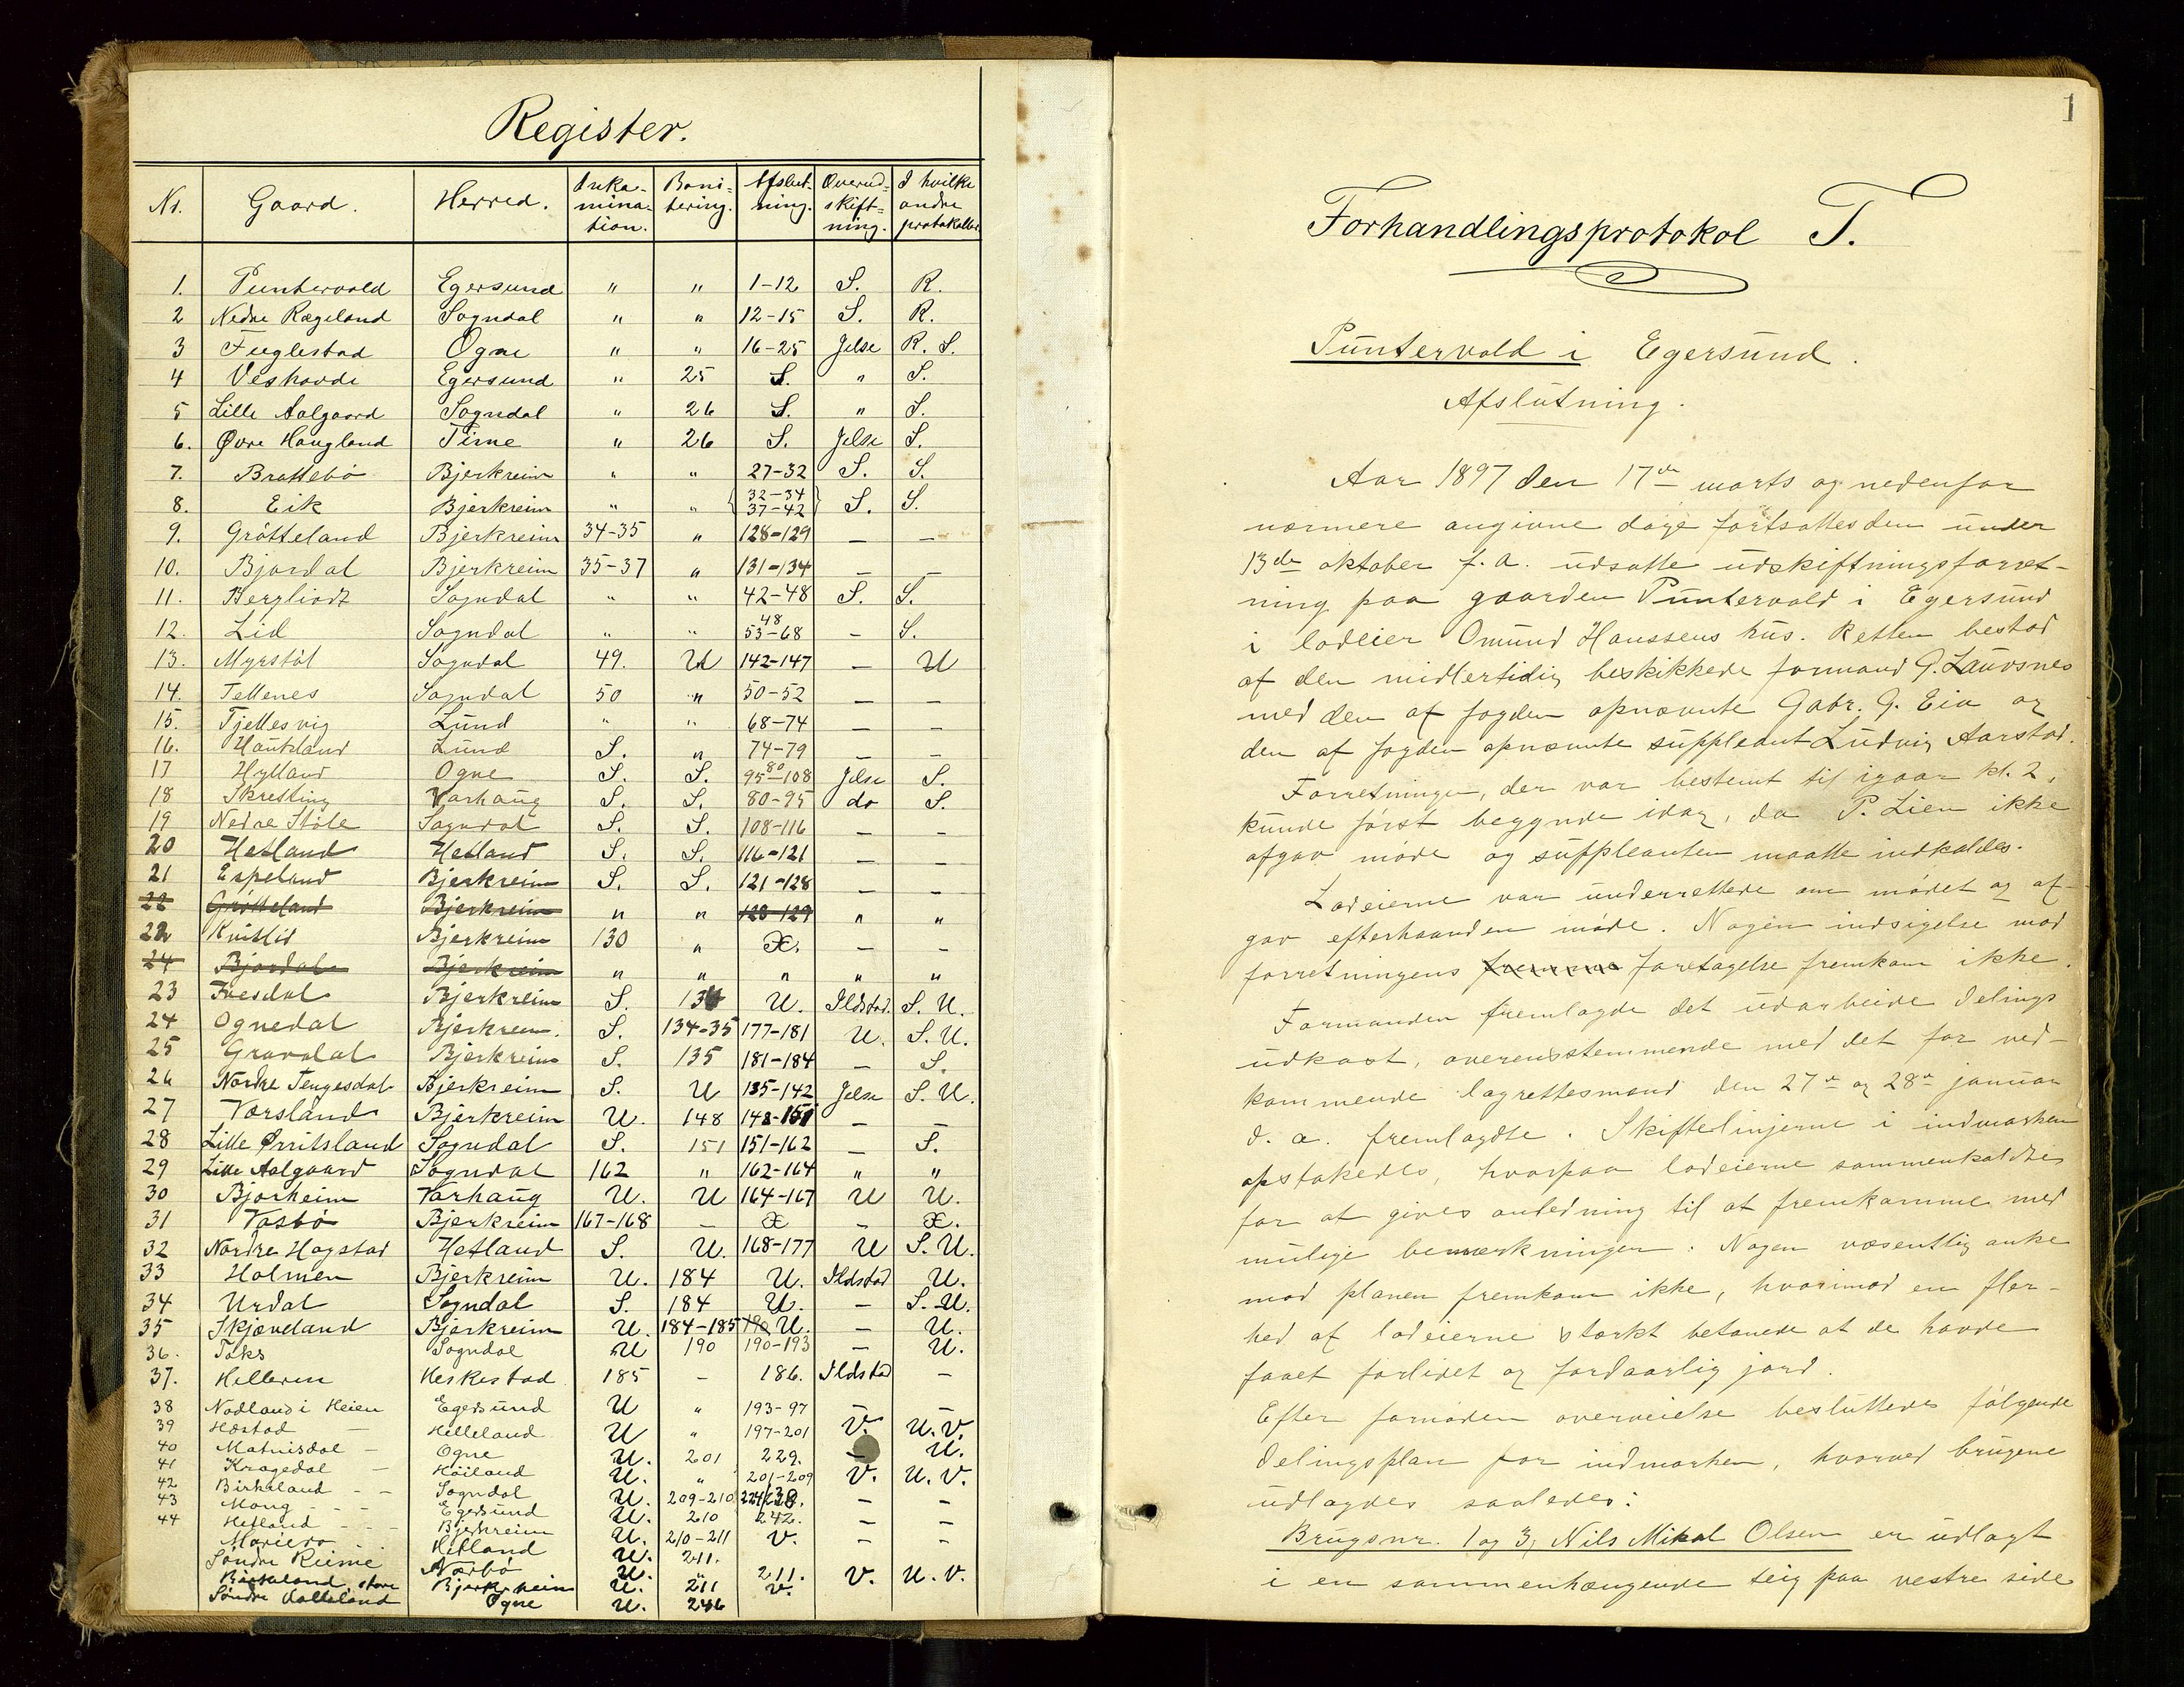 Register.
Nr. Gaard. Herred. Inka-mina-tion. Boni-tering. Afslut-ning. Overud-skift-ning. I hvilke andre protokoller
1. Puntervold Egersund " " 1-12 S. R.
2 Nedre Rægeland Sogndal " " 12-15 S. R.
3 Fuglestad Ogne " " 16-25 Jelse R. S.
4 Veshovde Egersund " 25 S. " S.
5 Lille Aalgaard Sogndal " 26 S. " S.
6. Øvre Haugland Time " 26 S. Jelse S.
7. Brattebö Bjerkreim " " 27-32 S. S.
8. Eik Bjerkreim " " {32-34 37-42} S. S.
9. Grötteland Bjerkreim 34-35 " 128-129 — —
10. Bjordal Bjerkreim 35-37 " 131-134 — —
11. Bergliodt Sogndal " " 42-48 S. S.
12. Lid Sogndal " " 48 53-68 - S.
13. Myrstöl Sogndal 49. U 142-147 — U
14. Tellenes Sogndal 50 " 50-52 — —
15. Tjellesvig Lund " " 68-74 — —
16. Haukland Lund S. " 74-79 — —
17 Hylland Ogne S. S. 80 95-108 Jelse S.
18 Skretting Varhaug S. S. 80-95 do S.
19 Nedre Stöle Sogndal S. S. 108-116 — —
20 Hetland Hetland S. S. 116-121 — —
21 Espeland Bjerkreim S. S. 121-128 — —
22 Grötteland Bjerkreim " " 128-129 " "
22 Kvitlid Bjerkreim 130 " Æ. — —
24 Bjordal Bjerkreim " " " " "
23 Bjerkreim S. U. Ildstad. S. U.
24 Ognedal Bjerkreim. S. 134-35 177-181 U. S. U.
25 Gravdal Bjerkreim S. 135 181-184 — S.
26 Nordre Tengesdal Bjerkreim S. U 135-142 Jelse S. U.
27 Vorsland Bjerkreim U. 148 148-151 — —
28 Lille Örritsland Sogndal S. 151 151-162 — S.
29 Lille Aalgaard Sogndal 162 " 162-164 " "
30 Bjorheim Varhaug U. U 164-167 U U.
31 Vasbö Bjerkreim 167-168 — Æ — Æ.
32 Nordre Hogstad Hetland S. U. 168-177 U S. U.
33 Holmen Bjerkreim U. 184 U. Ildstad U.
34 Urdal Sogndal S. 184 U. — S. U.
35 Skjæveland Bjerkreim U. 184-185 190 U. — U.
36. Toks Sogndal U 190 190-193 — U.
37. Helleren Heskestad 185 — 186. Ildstad —
38 Nodland i Heien Egersund U " 193-97 — —
39 Hæstad — Helleland U " 197-201 V. U. V.
40 Matnisdal — Ogne U. 201 229. — U.
41 Kragedal — Höiland U. " 201-209 V. U. V.
42 Birkeland - - Sogndal U. 209-210 — —
43 Mong - - - Egersund U. 210 242. — —
44 Hetland - - - Bjerkreim U. 210-211 V. — —
Hetland U. 211.
Söndre Reime Nærbö U. " 211. V. U. V.
Birkeland, store Bjerkreim U. 211 V.
Söndre Ogne U. 246
1
Forhandlingsprotokol T.
Puntervold i Egersund.
Afslutning.
Aar 1897 den 17de marts og nedenfor
nærmere angivne dage fortsattes den under
13de oktober f. a. udsatte udskiftningsforret-
ning paa gaarden Puntervold i Egersund
i lodeier Omund Hanssens hus. Retten bestod
af den midlertidig beskikkede formand G. Lauvsnes
med den af fogden opnævnte Gabr. G. Eia og
den af fogden opnævnte suppleant Ludvig Aarstad.
Forretningen, der var bestemt til igaar kl. 2,
kunde först begynde idag, da P. Lien ikke
afgav möde og suppleanten maatte indkaldes.
Lodeierne var underrettede om mödet og af-
gav efterhaanden möde. Nogen indsigelse mod
forretningens fremme foretagelse fremkom ikke.
Formanden fremlagde det udarbeide delings
udkast, overensstemmende med det for ved-
kommende lagrettesmænd den 27de og 28de januar
d. a. fremlagdte. Skiftelinjerne i indmarken
opstakedes, hvorpaa lodeierne sammenkaldtes
for at gives anledning til at fremkomme med
mulige bemærkninger. Nogen væsentlig anke
mod planen fremkom ikke, hvorimod en fler-
hed af lodeierne stærkt betonede at de havde
faaet forlidet og fordaarlig jord.
Efter fornöden overveielse besluttedes fölgende
delingsplan for indmarken, hvorved brugene
udlagdes saaledes:
Brugsnr. 1 og 3, Nils Mikal Olsen er udlagt
i en sammenhængende teig paa vestre side